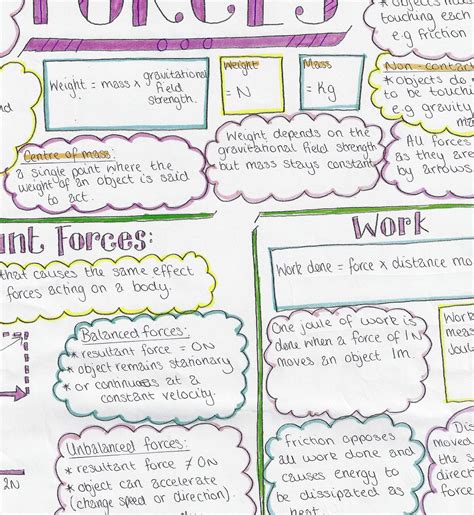 FORCES
touching each
e.g friction
Weight = mass x gravitational
field
strength.
Weight
= N
Mass
= Kg
Non-contac
*objects do
to be touchi
e.g gravity
m
All forces
as they are
by arrows.
Weight depends on the
gravitational field strength
but mass stays constant
Centre of mass:
a single point where the
weight of an object is said
to act.
ant Forces:
that causes the same effect
forces acting on a body.
Balanced forces:
* resultant force = 0N
* object remains stationary
* or continues at a
constant velocity
Unbalanced forces:
* resultant force ≠ 0N
* object can accelerate
(change speed or direction).
2N
Work
Work done = force x distance mo
One joule of work is
done when a force of 1N
moves an object 1m.
Work
mea
Jou
Friction opposes
all work done and
causes energy to
be dissipated as
heat.
Dis
moved
force